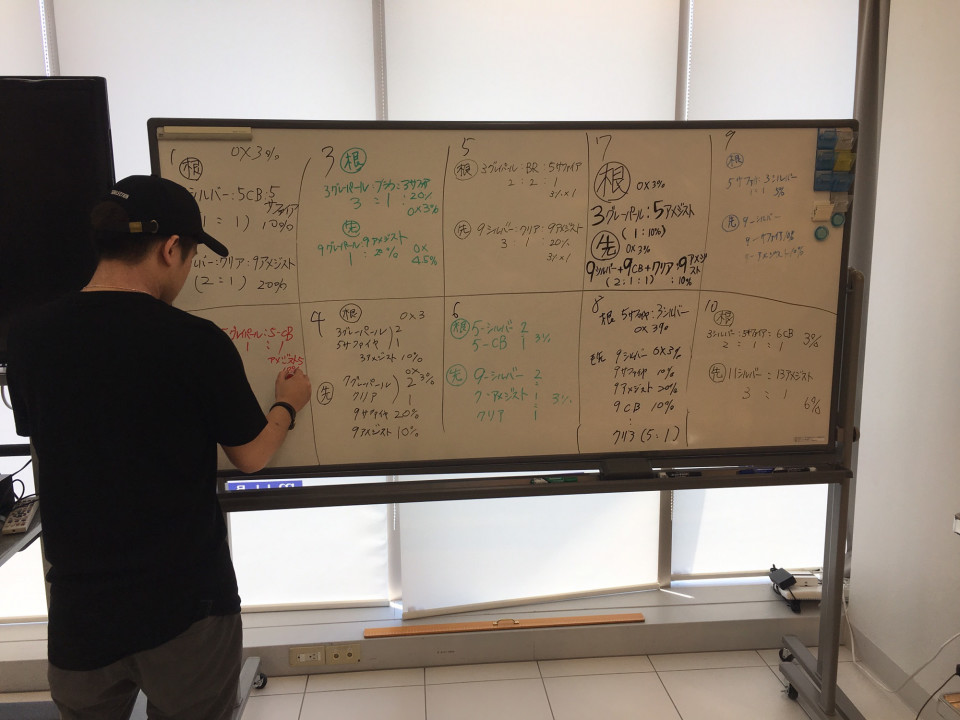 1
根
OX3%
シルバー:5CB:5
サファイア
1 : 1) 10%
ルバー:クリア:9アメジスト
(2:1) 20%
グレイパール:5-CB
1 : 1
アメジスト5
3
根
3グレイパール:
3 : 1 : 20%
OX3%
先
9グレイパール:9アメジスト
OX
4.5%
4
根
OX3
3グレーパール 2
5サファイヤ 1
3アメジスト 10%
先
7グレーパール 2
OX
3%
クリア 1
9サファイヤ 20%
9アメジスト 10%
5
根
3グレイパール:BR:5サファイア
2 : 2 : 1
3%×1
先
9シルバー:クリア:9アメジスト
3 : 1 : 20%
3%×1
6
根
5-シルバー 2
5-CB 1
3%
先
9-シルバー 2
7-アメジスト 1
クリア 1
3%
7
根
OX3%
3グレーパール:5アメジスト
(1:10%)
先
OX3%
9シルバー+9CB+クリア:9アメジスト
(2:1:1) : 10%
8
根
5サファイヤ:3シルバー
OX3%
毛先
9シルバー OX3%
9サファイヤ 10%
9アメジスト 20%
9CB 10%
:
クリア (5:1)
9
根
5サファイ:3シルバー
1:1
3%
先
9-シルバー
10
根
3シルバー:5サファイア:6CB
2 : 1 : 1
3%
先
11シルバー:13アメジスト
3 : 1
6%